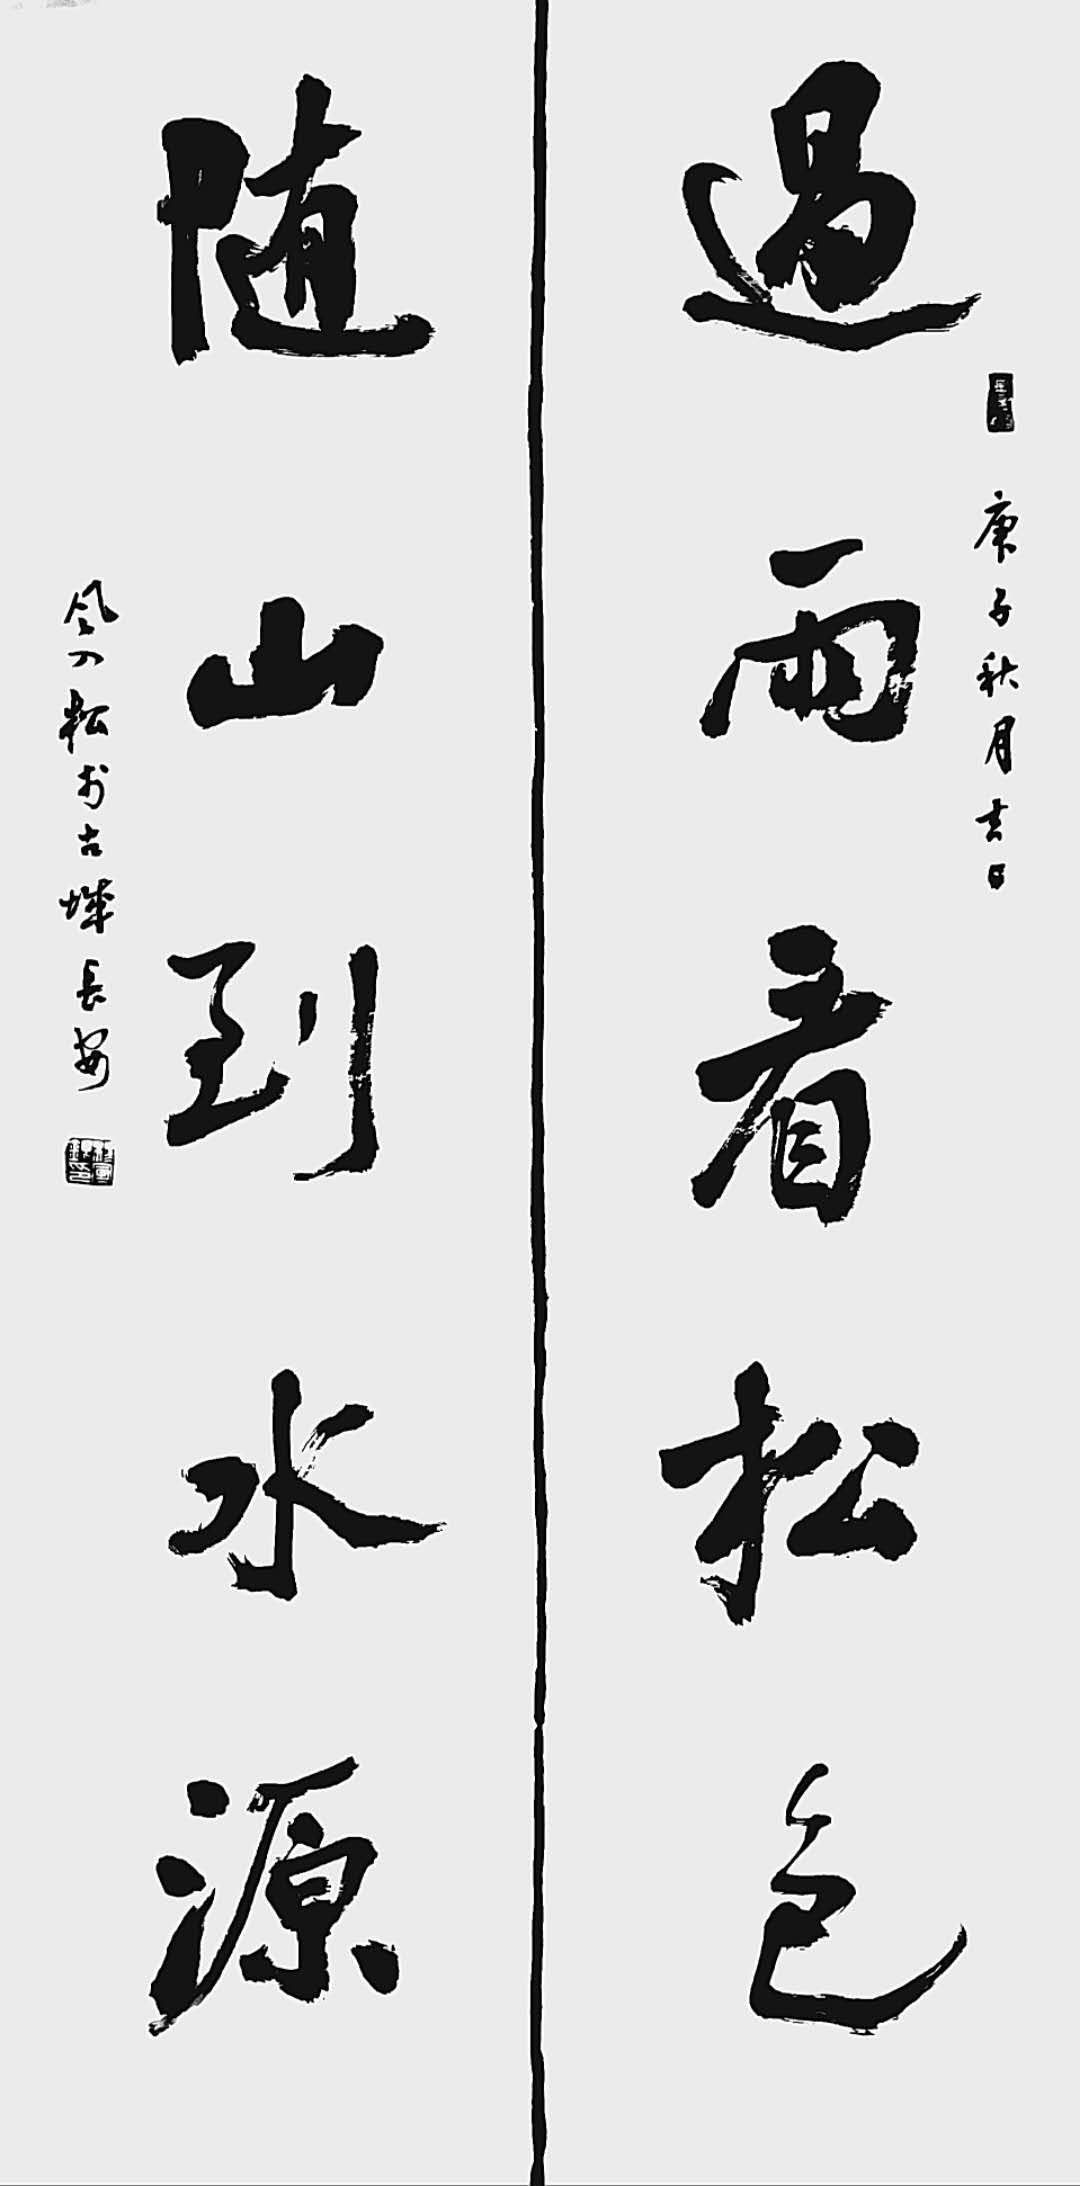 過雨看松色
庚子秋月吉日
随山到水源
松於古城長安